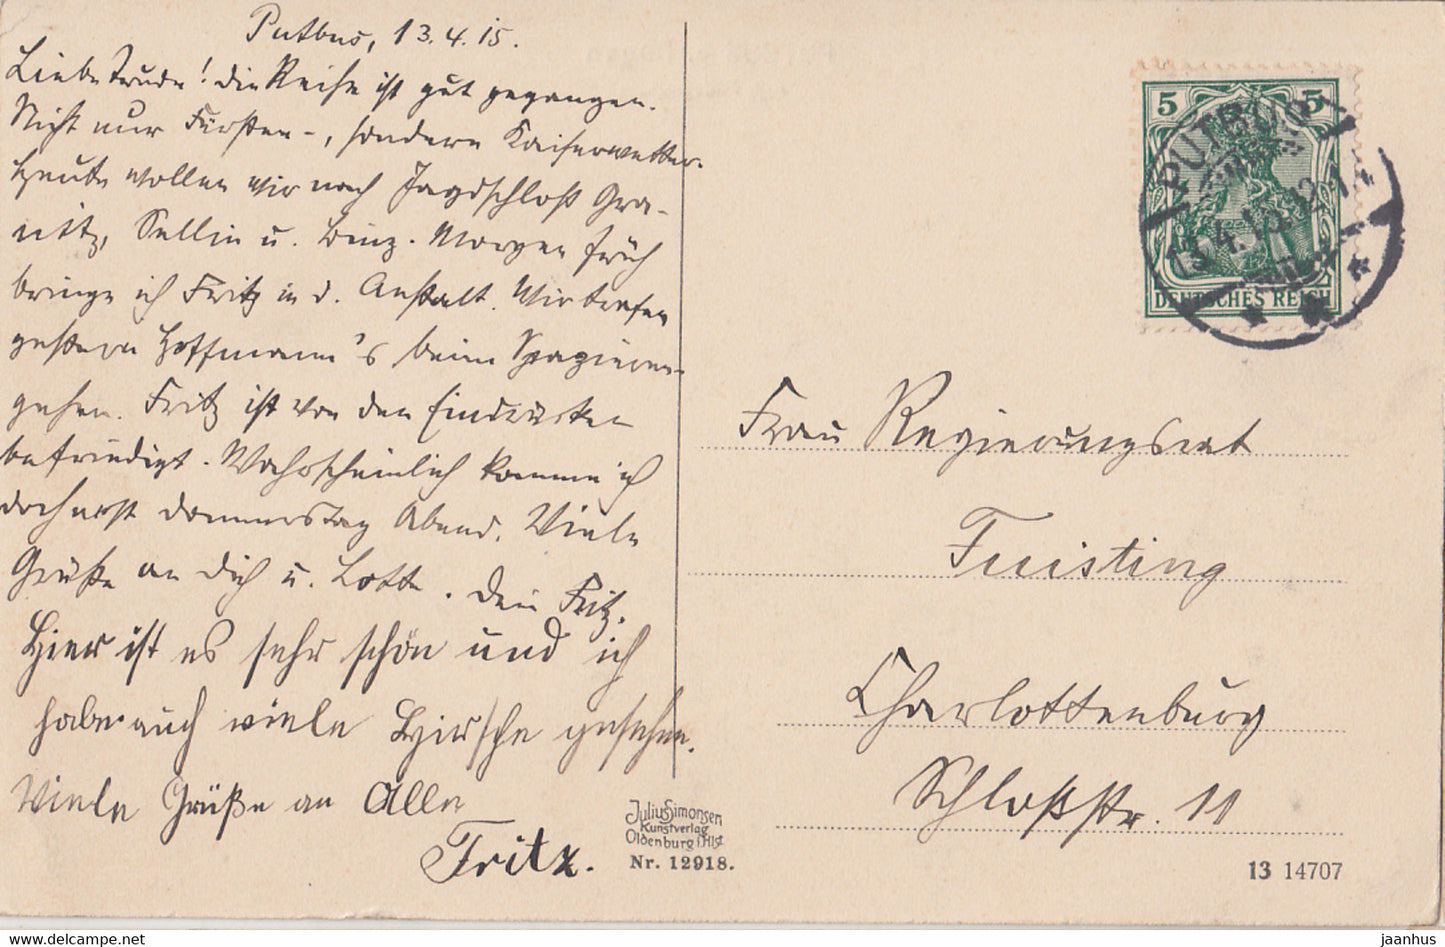 Putbus, 13.4.15.
Liebe Trude! Die Reise ist gut gegangen.
Nicht nur Fürsten-, sondern Kaiserwetter.
Heute wollen wir nach Jagdschloß Gra-
nitz, Sellin u. Binz. Morgen früh
bringe ich Fritz in d. Anstalt. Wir trafen
gestern Hoffmann's beim Spazieren-
gehen. Fritz ist von den Eindrücken
befriedigt. Wahrscheinlich komme ich
doch erst Donnerstag Abend. Viele
Grüße an Dich u. Lotte. Dein Fritz.
Hier ist es sehr schön und ich
habe auch viele Hirsche gesehen.
Viele Grüße an Alle
Fritz.
5 5
DEUTSCHES REICH
PUTBUS
13.4.15.12-1
Frau Regierungsrat
Tuisting
Charlottenburg
Schloßstr. 11
Julius Simonsen
Kunstverlag
Oldenburg i. Hlst
Nr. 12918.
13 14707
www.delcampe.net
jaanhus